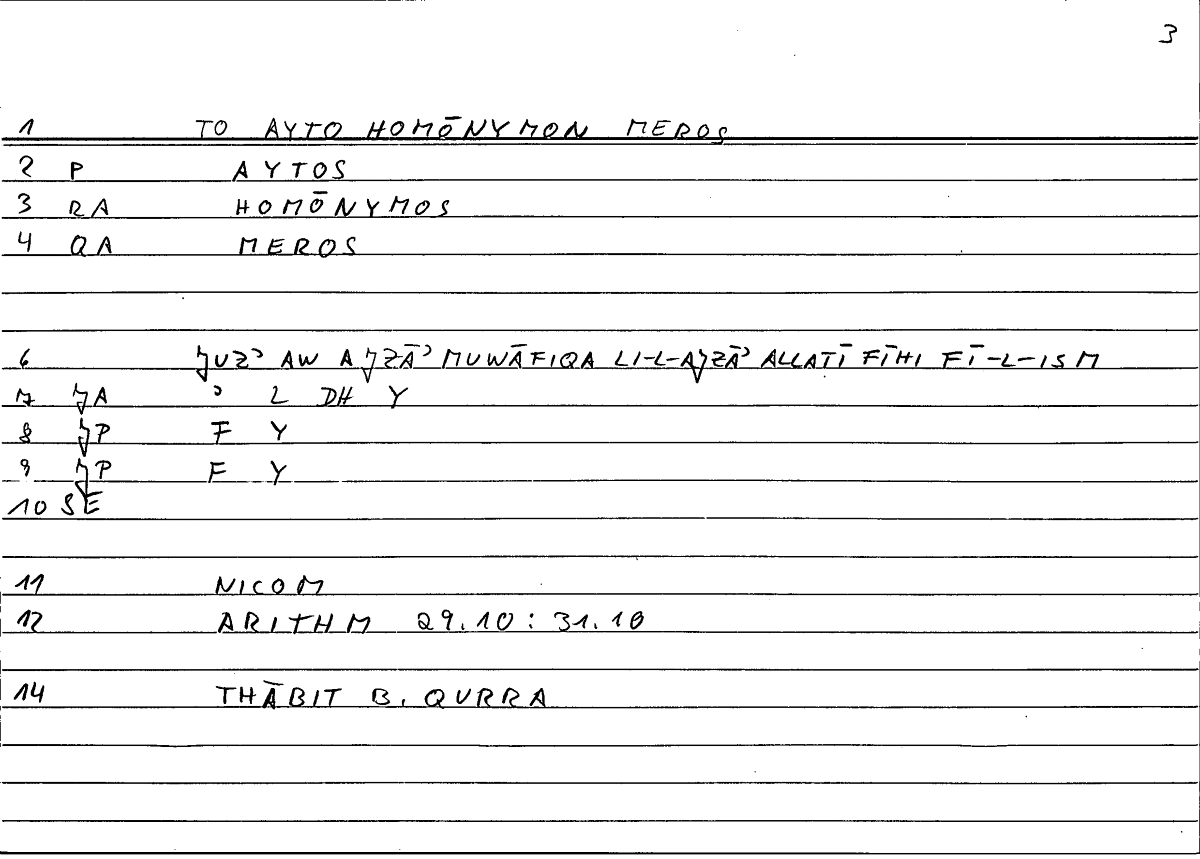 3
1 TO AYTO HOMŌNYMON MEROS
2 P AYTOS
3 RA HOMŌNYMOS
4 QA MEROS
6 ǦUZʾ AW AǦZĀʾ MUWĀFIQA LI-L-AǦZĀʾ ALLATĪ FĪHI FĪ-L-ISM
7 ǦA ʾ L DH Y
8 ǦP F Y
9 ǦP F Y
10 SE
11 NICOM
12 ARITHM 29.10 : 31.10
14 THĀBIT B. QURRA